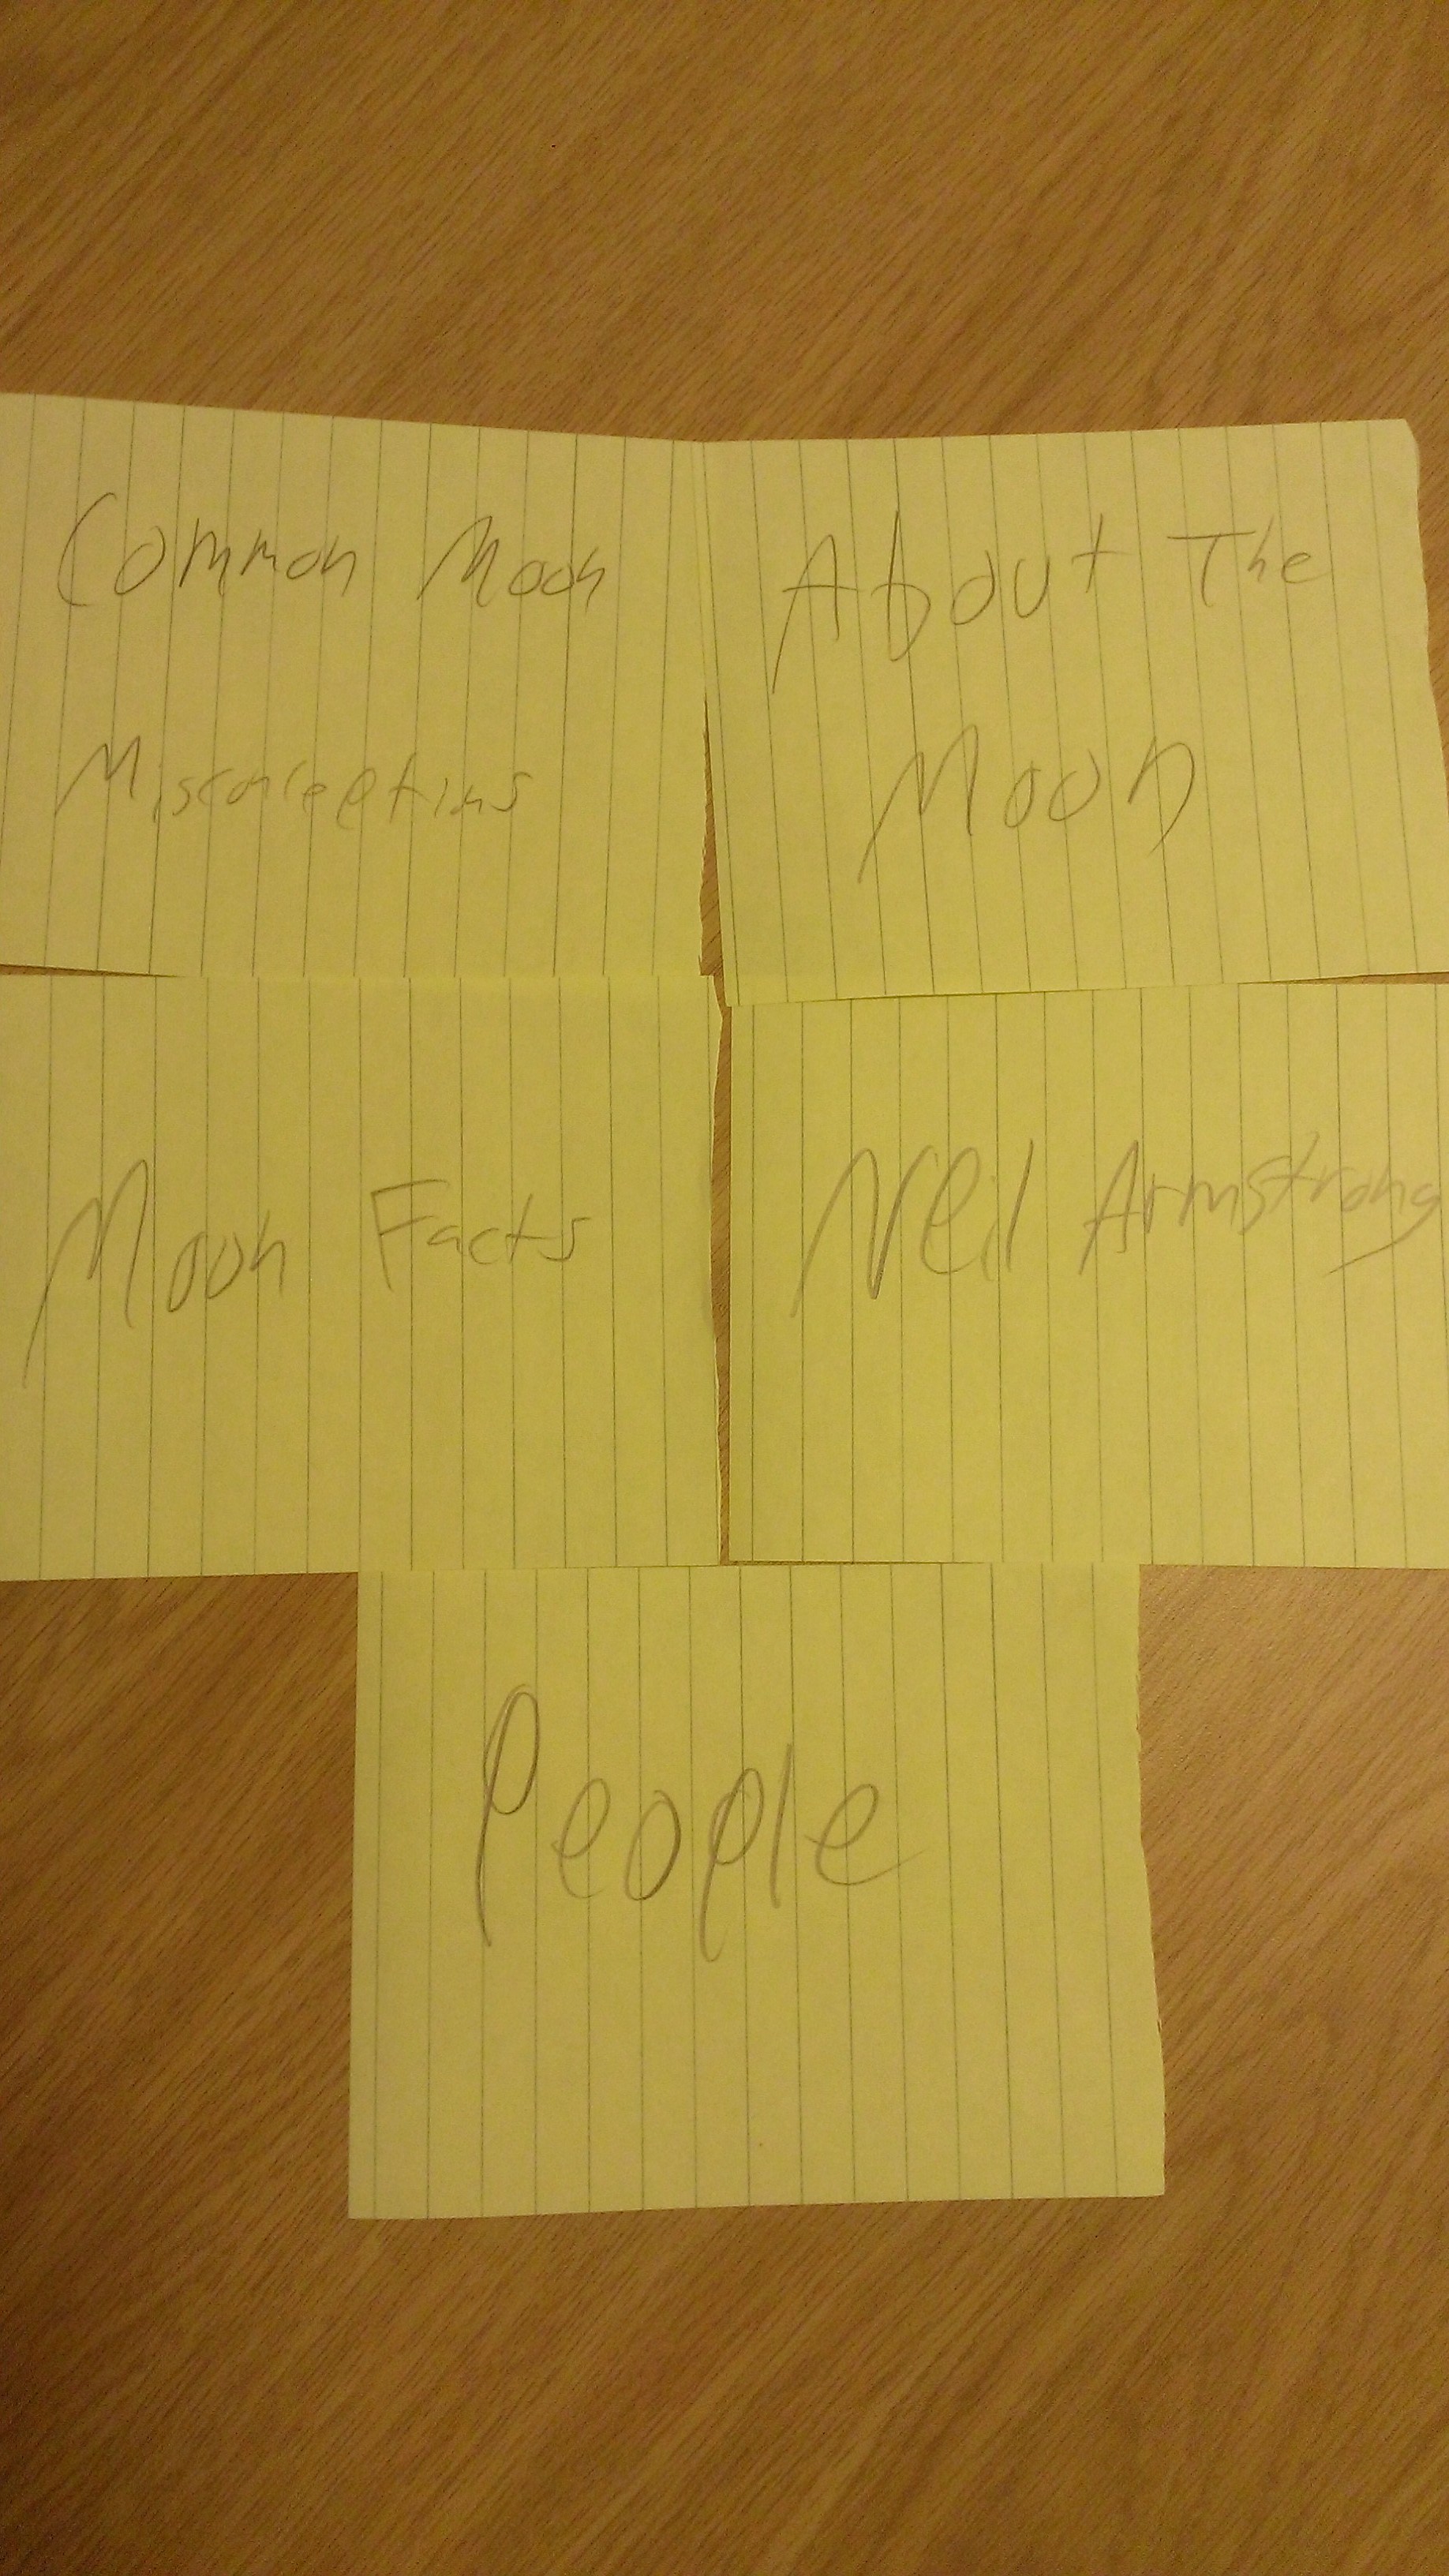 Common Moon
Misconceptions
About The
Moon
Moon Facts
Neil Armstrong
People